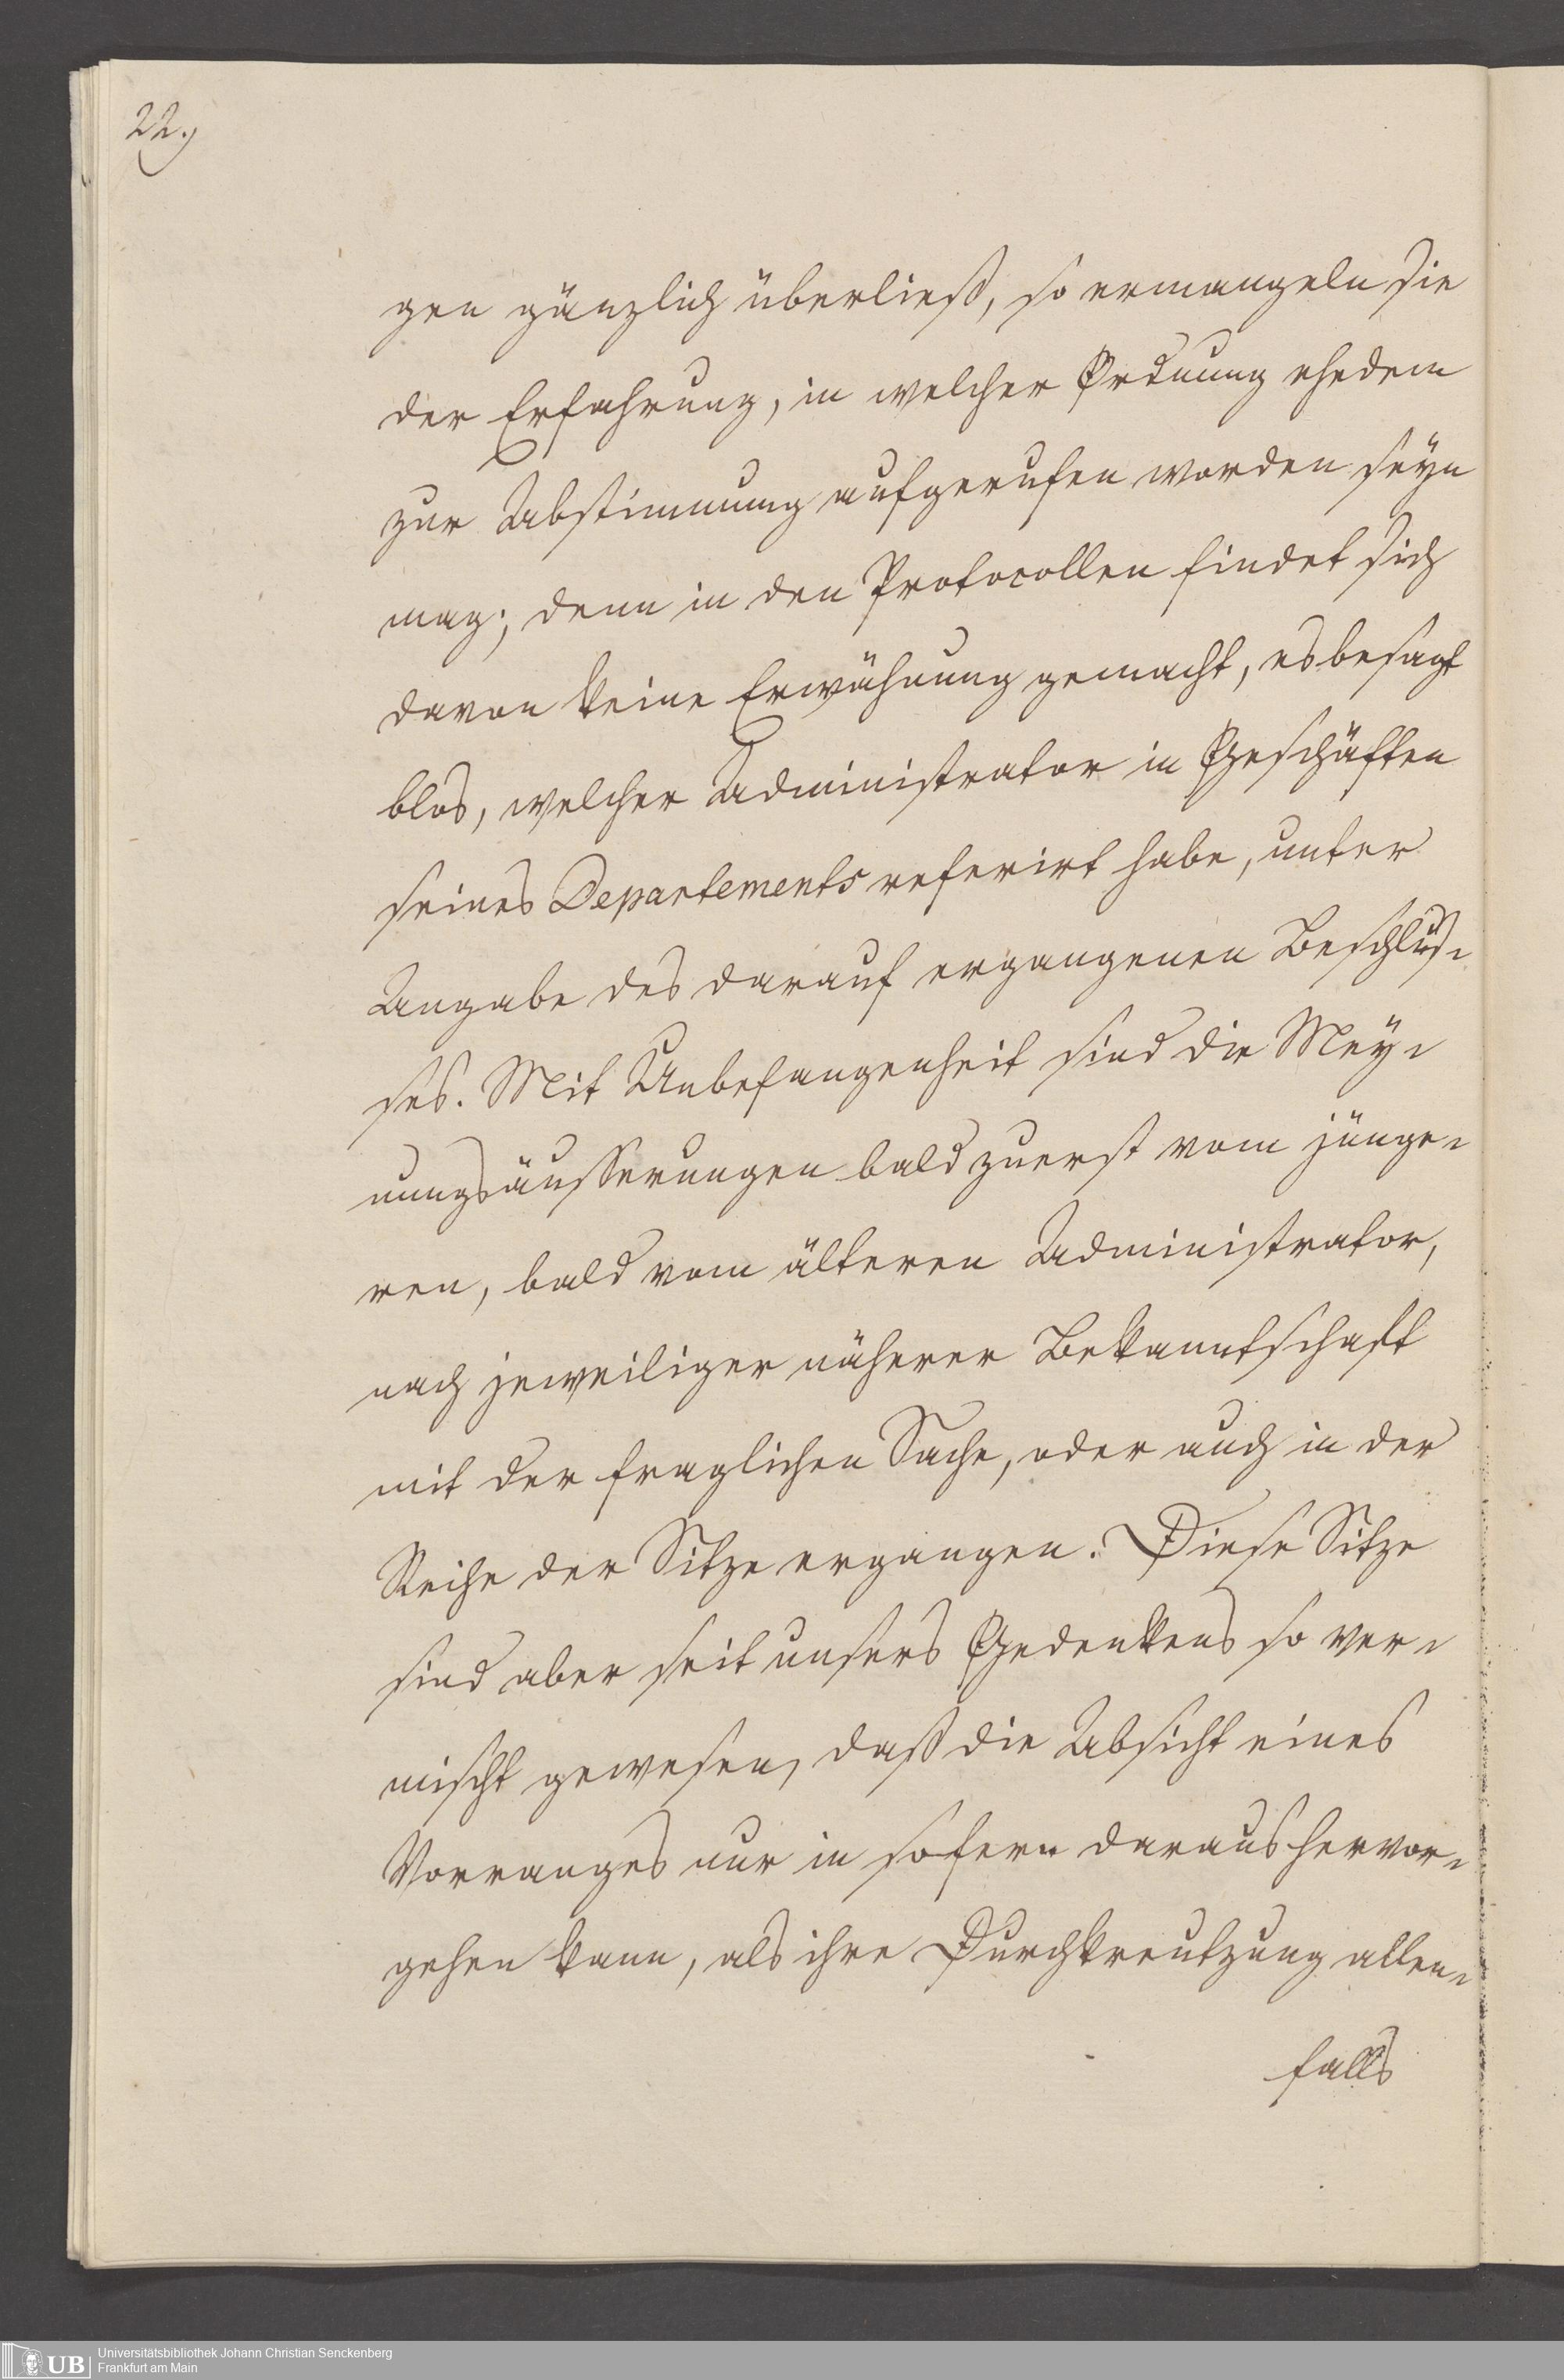 22.)
gen gänzlich überließ, so ermangeln sie
der Erfahrung, in welcher Ordnung ehedem
zur Abstimmung aufgerufen worden seyn
mag; denn in den Protocollen findet sich
davon keine Erwähnung gemacht, es besagt
blos, welcher Administrator in Geschäften
seines Departements referirt habe, unter
Angabe des darauf ergangenen Beschlus-
ses. Mit Unbefangenheit sind die Mey-
nungsäusserungen bald zuerst vom jünge-
ren, bald vom älteren Administrator,
nach jeweiliger näherer Bekanntschaft
mit der fraglichen Sache, oder auch in der
Reihe der Sitze ergangen. Diese Sitze
sind aber seit unsers Gedenkens so ver-
mischt gewesen, daß die Absicht eines
Vorranges nur in sofern daraus hervor-
gehen kann, als ihre Durchkreutzung allen-
falls
UB
Universitätsbibliothek Johann Christian Senckenberg
Frankfurt am Main